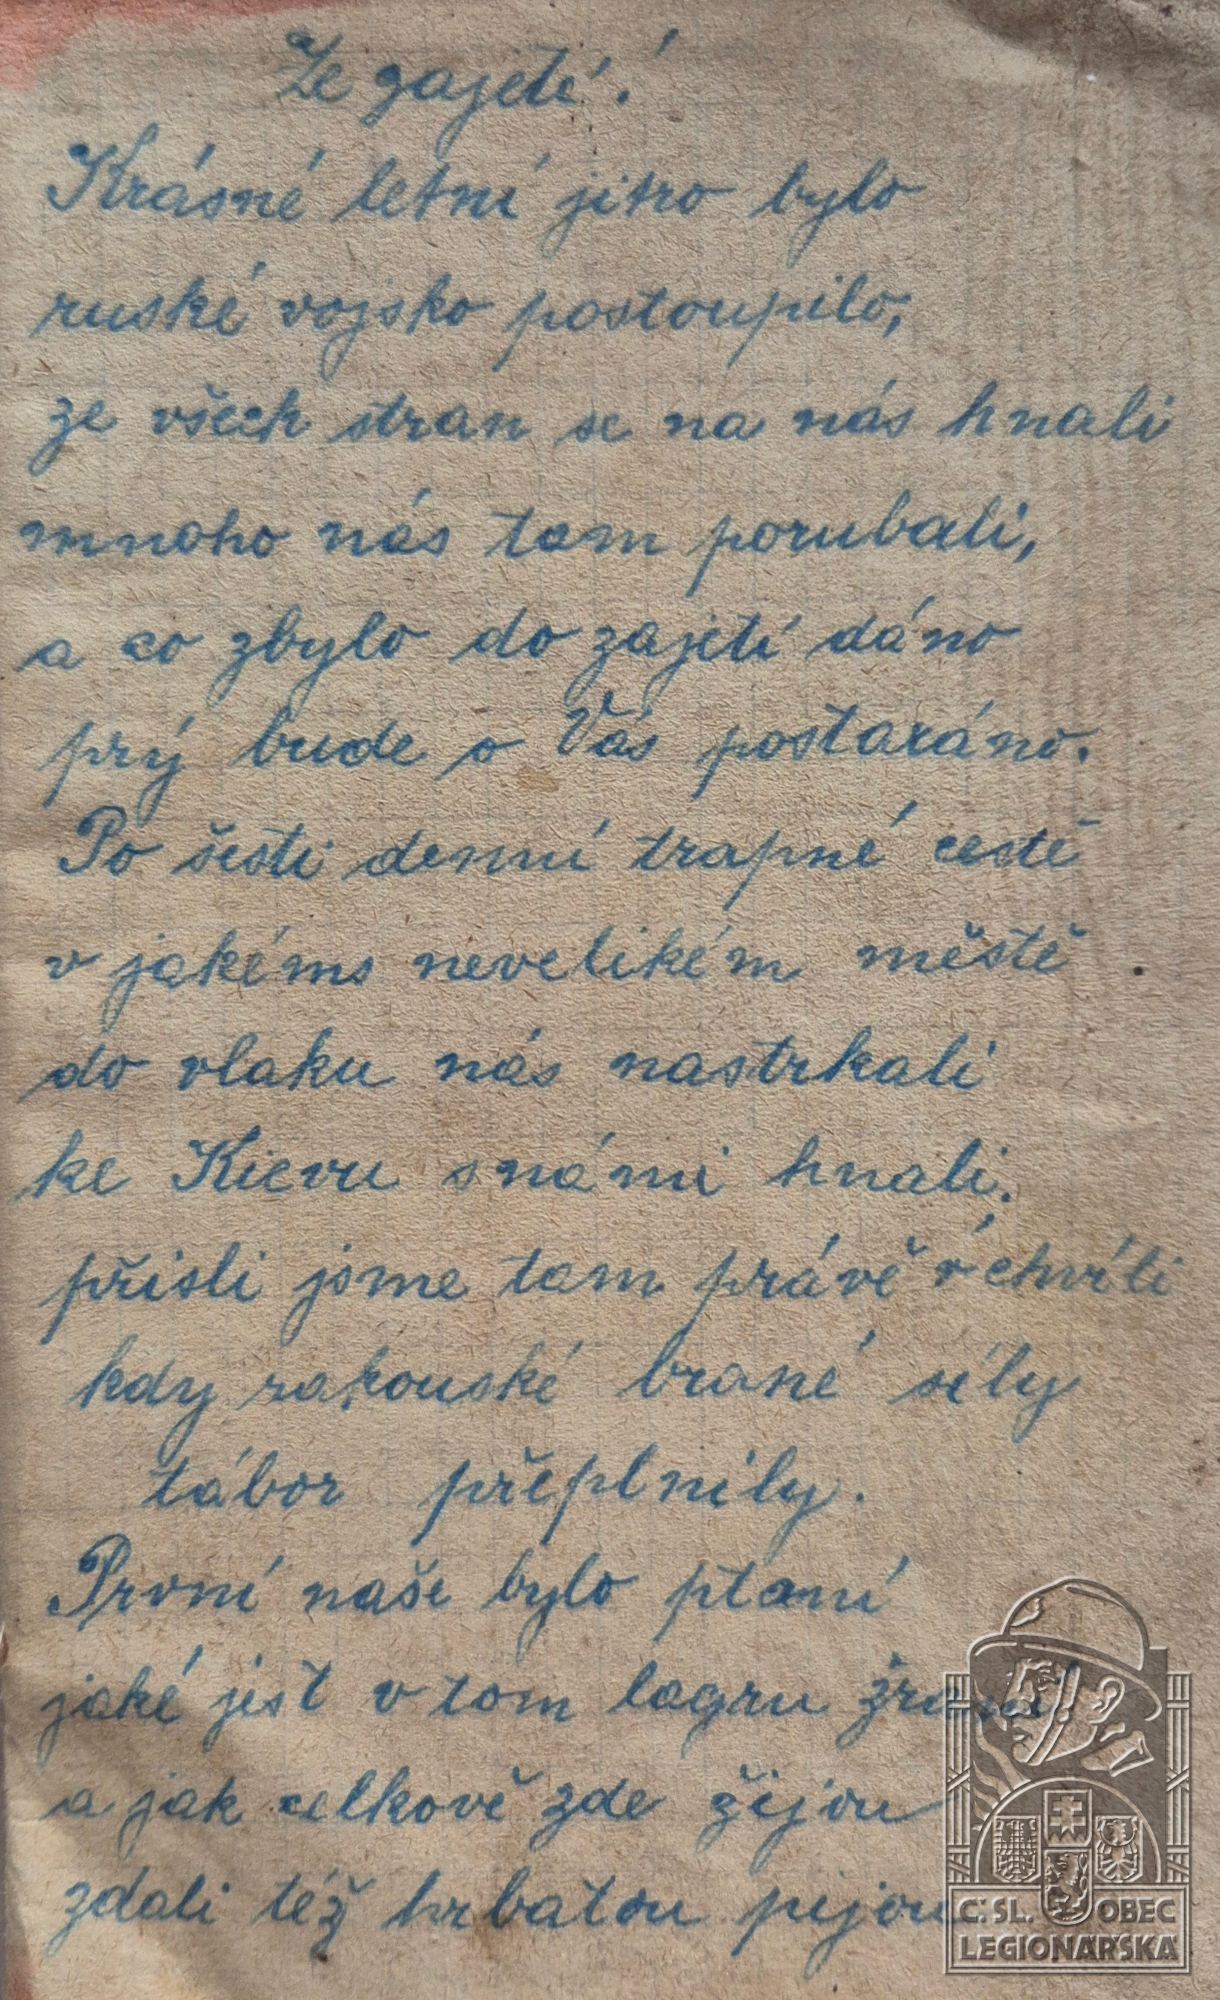 Ze zajetí!
Krásné letní jitro bylo
ruské vojsko postoupilo,
ze všech stran se na nás hnali
mnoho nás tam porubali,
a co zbylo do zajetí dáno
prý bude o Vás postaráno.
Po šesti denní trapné cestě
v jakéms nevelikém městě
do vlaku nás nastrkali
ke Kievu snámi hnali.
přisli jsme tam právě v chvíli
kdy rakouské brané síly
tábor přeplnily.
První naše bylo ptaní
jaké jest v tom lagru žraní
a jak celkově zde žijou
zdali též hrbatou pijou
Č. SL. OBEC
LEGIONÁŘSKÁ